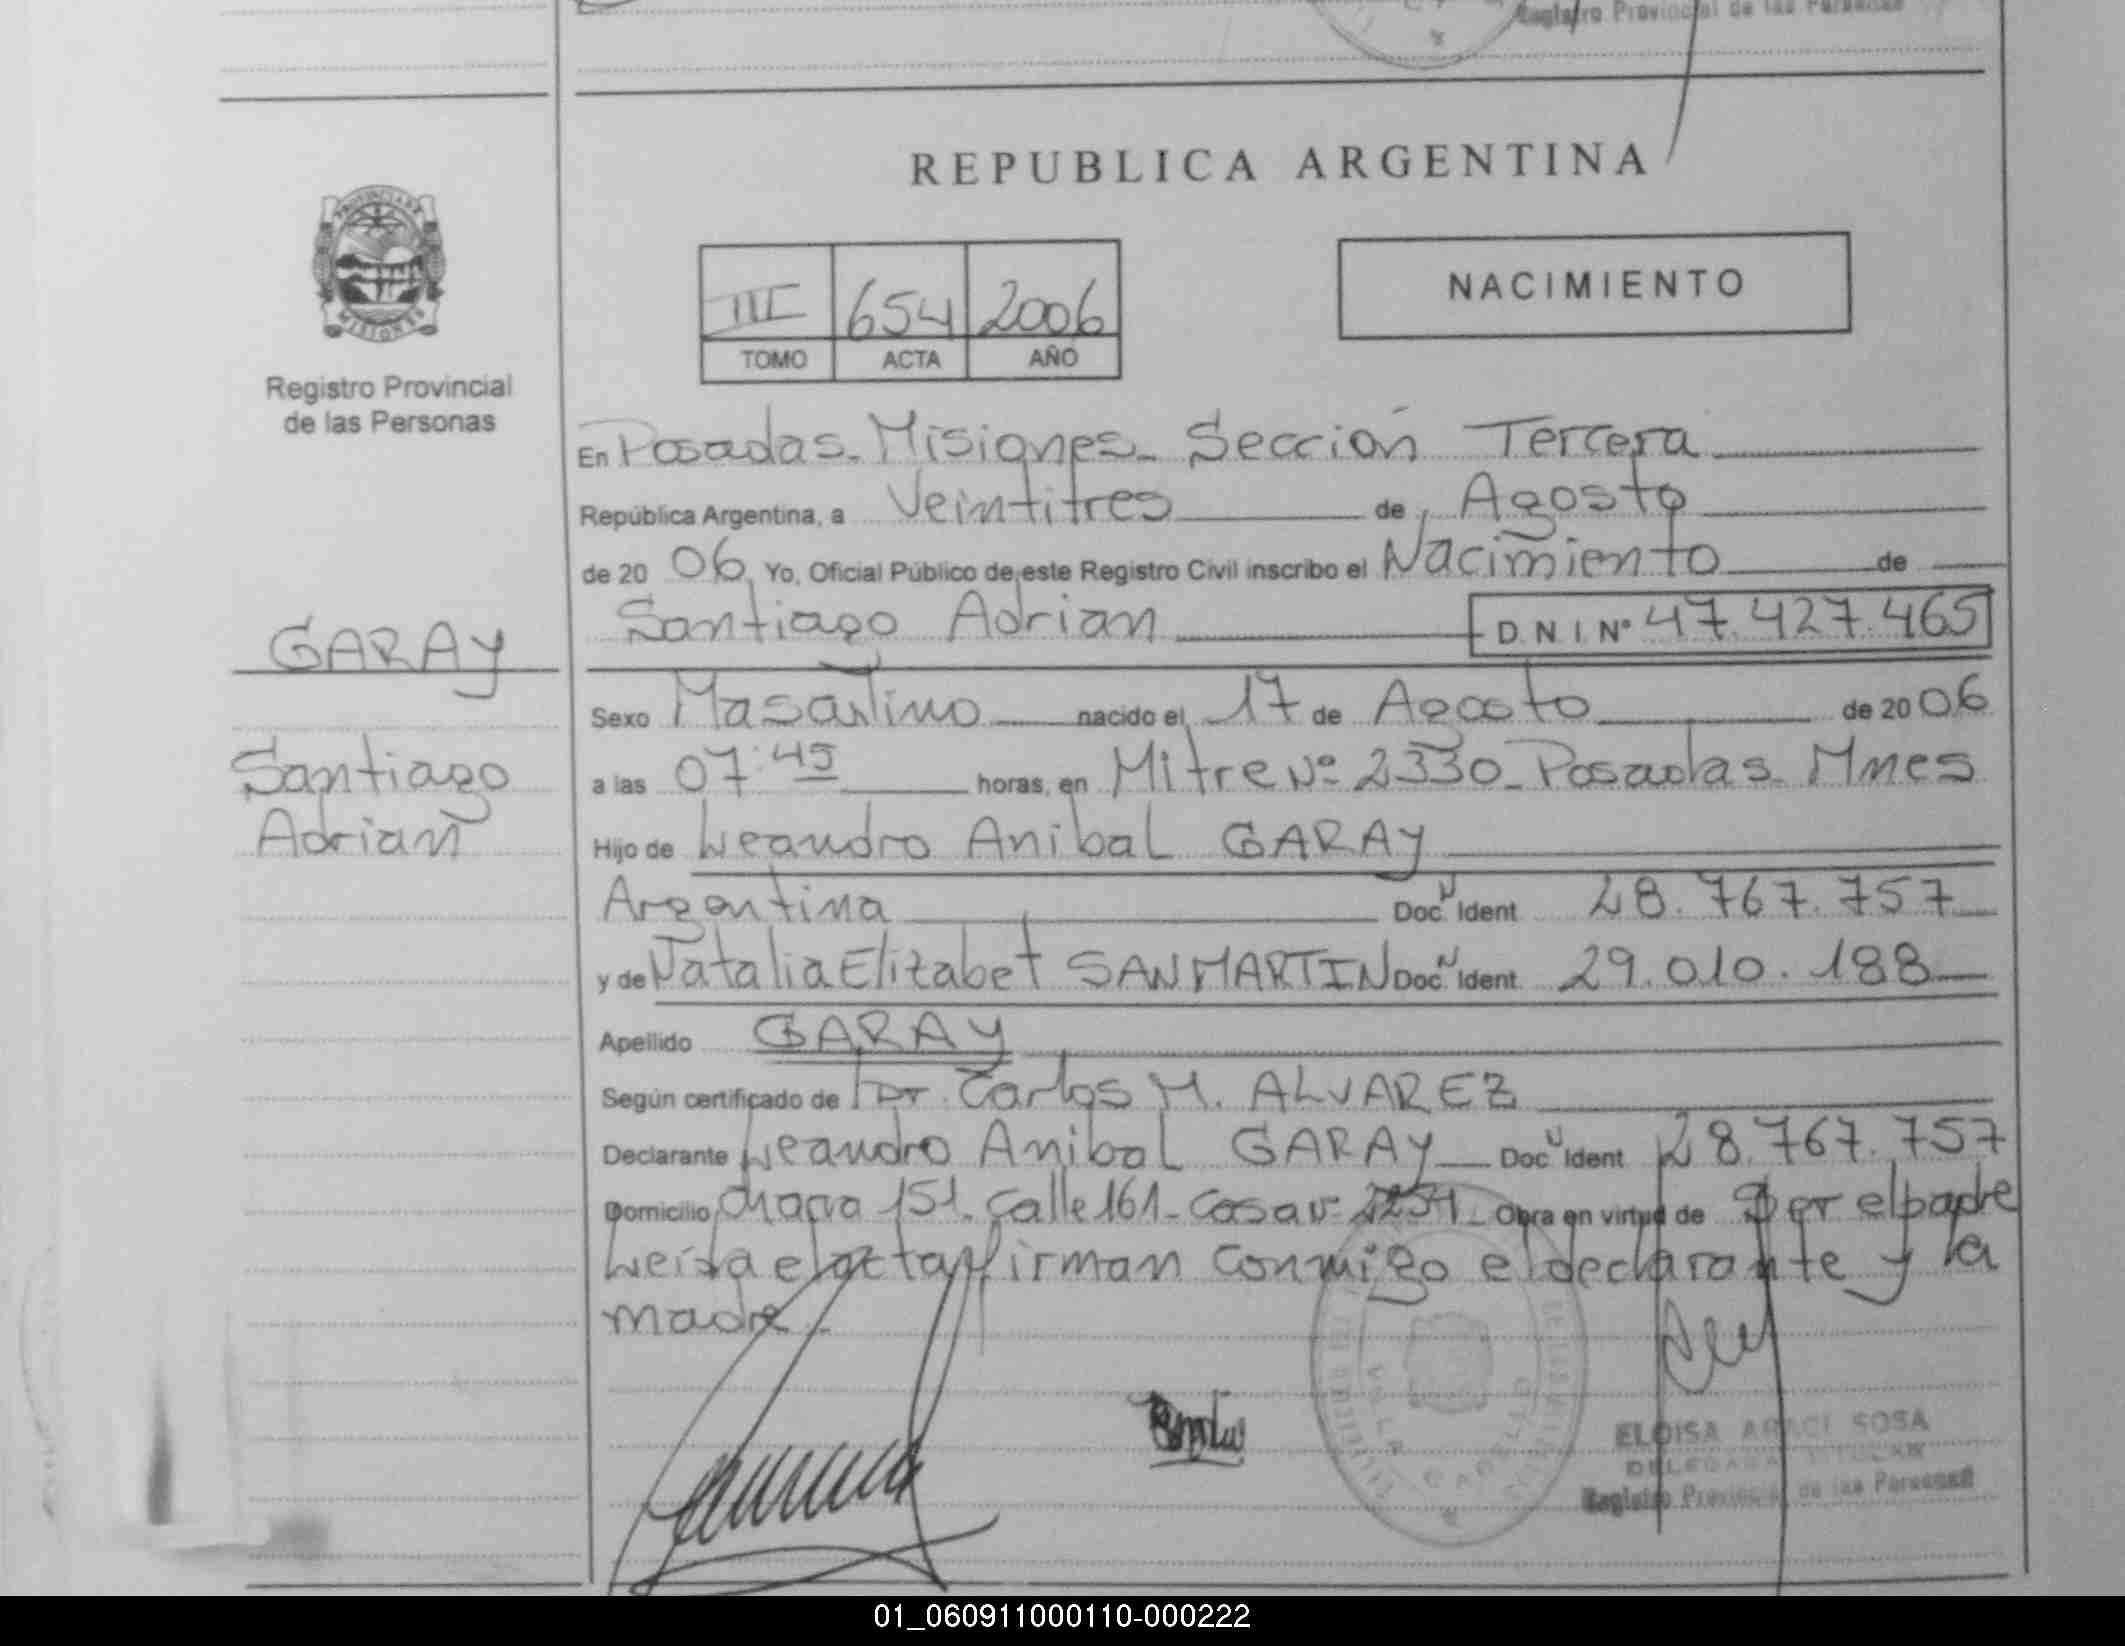 Registro Provincial de las Personas
REPUBLICA ARGENTINA
PROVINCIA DE
MISIONES
Registro Provincial
de las Personas
III 654 2006
TOMO ACTA AÑO
NACIMIENTO
En Posadas. Misiones. Sección Tercera
República Argentina, a Veintitres de Agosto
de 20 06 Yo, Oficial Público de este Registro Civil inscribo el Nacimiento de
Santiago Adrian D.N.I. Nº 47.427.465
GARAY
Santiago
Adrian
Sexo Masculino nacido el 17 de Agosto de 20 06
a las 07:45 horas, en Mitre Nº 2330_ Posadas. Mnes
Hijo de Leandro Anibal GARAY
Argentina Doc. N Ident 28.767.757
y de Natalia Elizabet SANMARTIN Doc. N Ident 29.010.188
Apellido GARAY
Según certificado de Dr. Carlos M. ALVAREZ
Declarante Leandro Anibal GARAY Doc Ident 28.767.757
Domicilio Chacra 151. Calle 161_ Casa Obra en virtud de Ser el padre
Leída el acta firman conmigo el declarante y la
madre.
ELOISA ARACI SOSA
DELEGADA TITULAR
Registro Provincial de las Personas
01_060911000110-000222